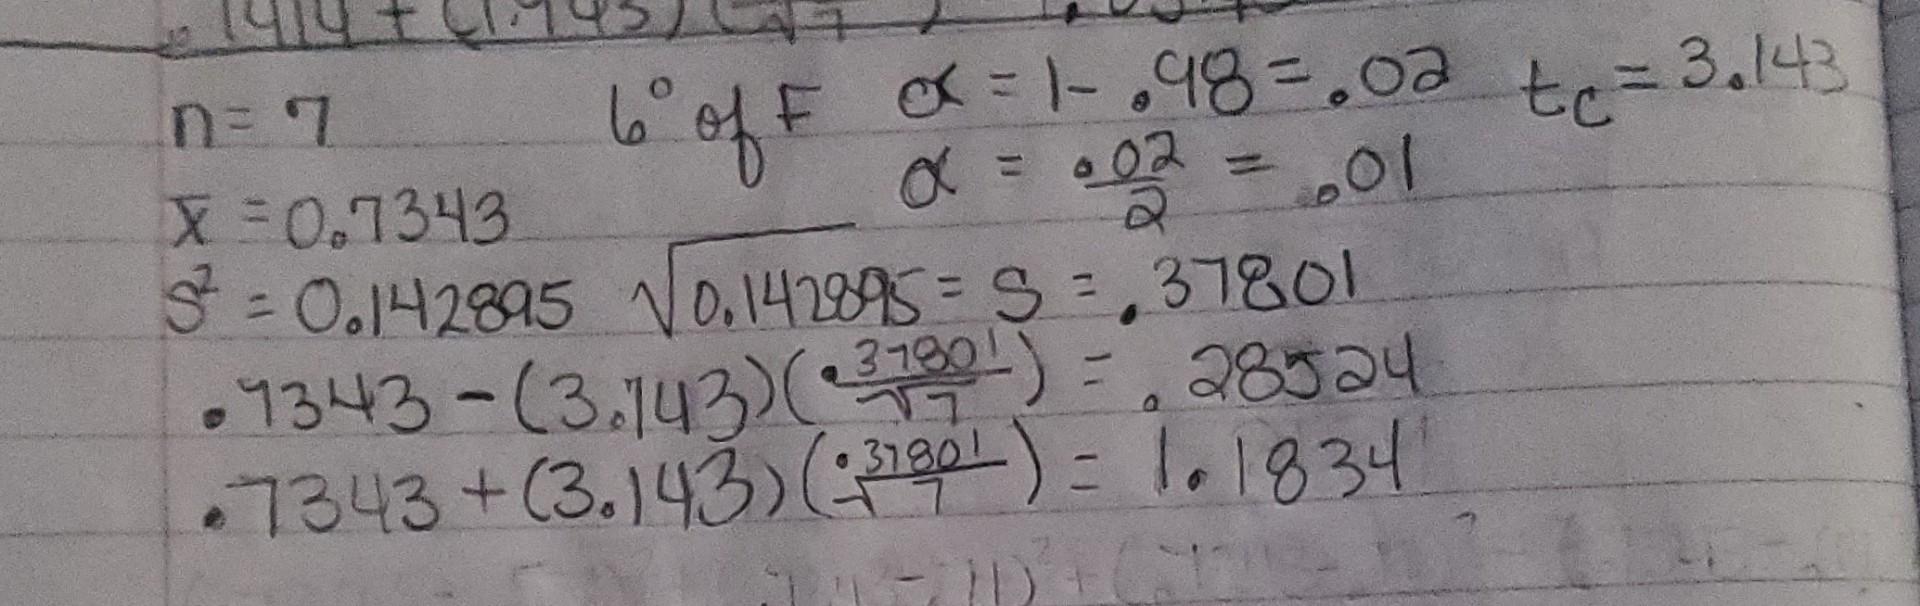 .1414 + (1.943)(√7)
n = 7 6° of F α = 1 - .98 = .02 tc = 3.143
α = .02/2 = .01
x̄ = 0.7343
S² = 0.142895 √0.142895 = S = .37801
.7343 - (3.143)(.37801/√7) = .28524
.7343 + (3.143)(.37801/√7) = 1.1834